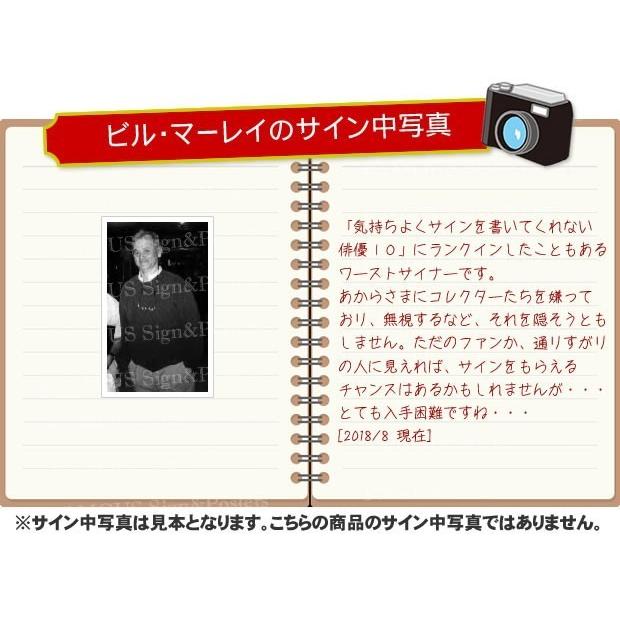 ビル・マーレイのサイン中写真
US Sign&Posters
US Sign&Posters
US Sign&Posters
US Sign&Posters
「気持ちよくサインを書いてくれない
俳優10」にランクインしたこともある
ワーストサイナーです。
あからさまにコレクターたちを嫌って
おり、無視するなど、それを隠そうとも
しません。ただのファンか、通りすがり
の人に見えれば、サインをもらえる
チャンスはあるかもしれませんが・・・
とても入手困難ですね・・・
[2018/8 現在]
US Sign&Posters
※サイン中写真は見本となります。こちらの商品のサイン中写真ではありません。